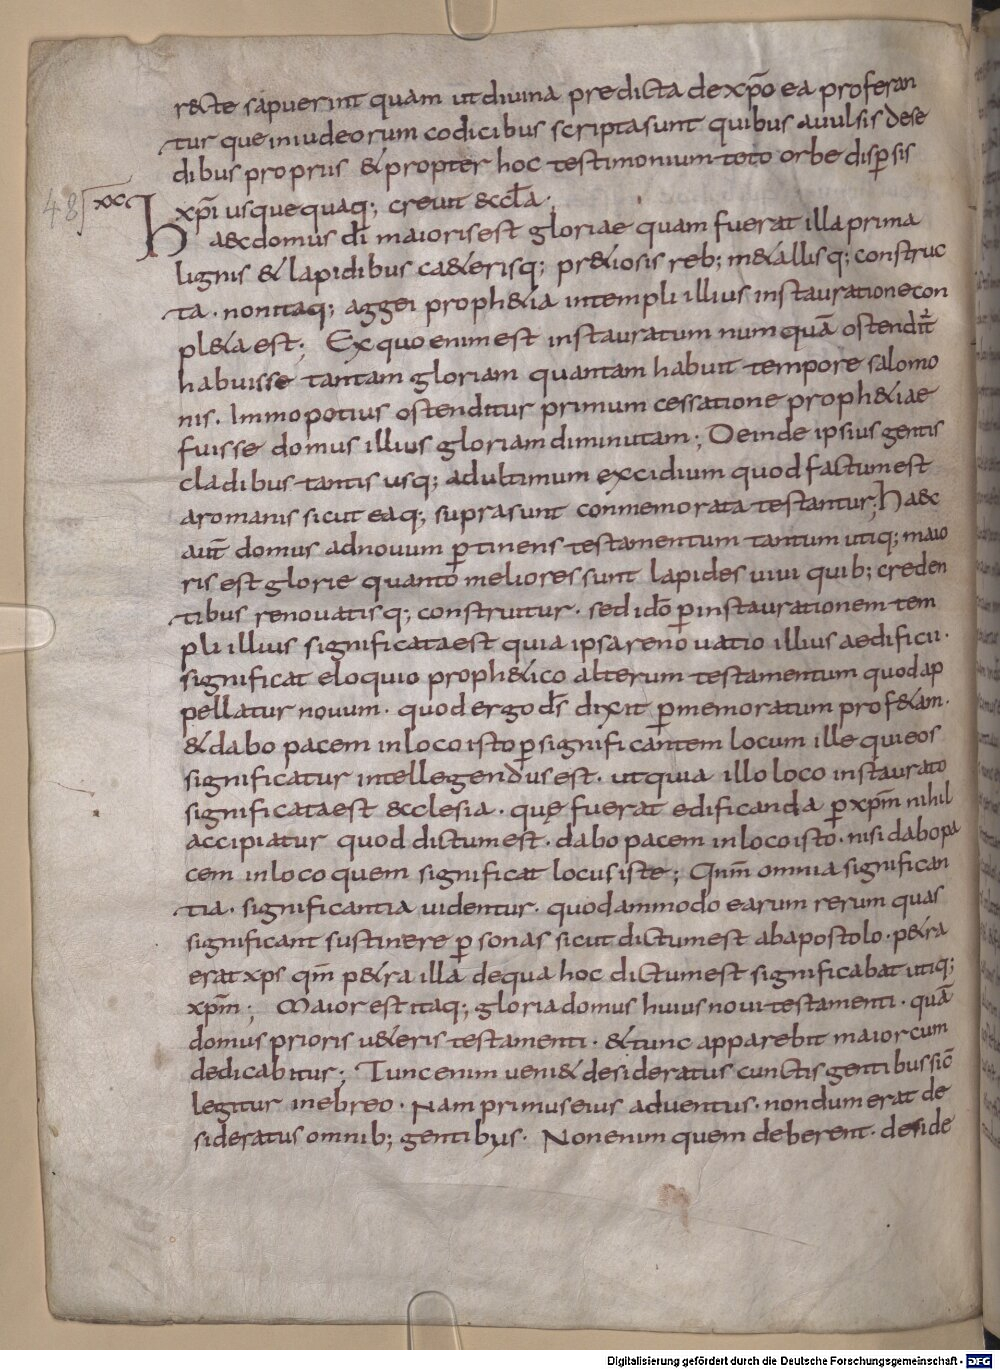 recte sapuerint quam ut diuina predicta de xp̄o ea proferan
tur que in iudeorum codicibus scripta sunt quibus auulsis de se
dibus propriis & propter hoc testimonium toto orbe disp̄sis
xp̄i usque quaq; creuit eccl̄a.
48 xxc H aec domus d̄i maioris est gloriae quam fuerat illa prima
lignis & lapidibus c&erisq; pr&iosis reb; m&allisq; construc
ta. non itaq; aggei proph&ia in templi illius instauratione con
pl&a est; Ex quo enim est instauratum num quā ostendit̄
habuisse tantam gloriam quantam habuit tempore salomo
nis. Immo potius ostenditur primum cessatione proph&iae
fuisse domus illius gloriam diminutam; Deinde ipsius gentis
cladibus tantis usq; ad ultimum excidium quod factum est
a romanis sicut eaq; supra sunt conmemorata testantur; Haec
aūt domus ad nouum p̄tinens testamentum tantum utiq; maio
ris est glorie quanto meliores sunt lapides uiui quib; creden
tibus renouatisq; construitur. sed idō p̄ instaurationem tem
pli illius significata est quia ipsa reno uatio illius aedificii.
significat eloquio proph&ico alterum testamentum quod ap
pellatur nouum. quod ergo d̄s dixit p̄ memoratum prof&am.
& dabo pacem in loco isto p̄ significantem locum ille qui eos
significatur intellegendus est. ut quia illo loco instaurato
significata est ecclesia. quę fuerat edificanda p̄ xp̄m nihil
accipiatur quod dictum est. dabo pacem in loco isto. nisi dabo pa
cem in loco quem significat locus iste; Qn̄m omnia significan
tia. significantia uidentur. quodammodo earum rerum quas
significant sustinere p̄sonas sicut dictum est ab apostolo. p&ra
erat xps qm̄ p&ra illa de qua hoc dictum est significabat utiq;
xp̄m; Maior est itaq; gloria domus huius noui testamenti. quā
domus prioris u&eris testamenti. & tunc apparebit maior cum
dedicabitur; Tunc enim ueni& desideratus cunctis gentibus sic̄
legitur in ebreo. Nam primus eius aduentus. nondum erat de
sideratus omnib; gentibus. Non enim quem deberent. deside
Digitalisierung gefördert durch die Deutsche Forschungsgemeinschaft - DFG